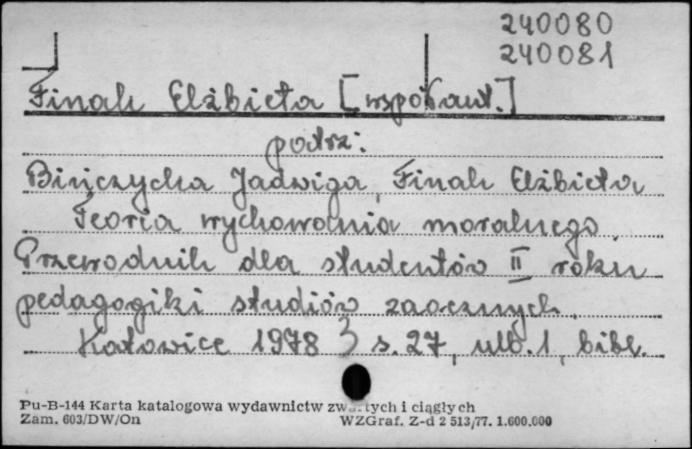 240080
240081
Finak Elżbieta [współaut.]
patrz:
Bińczycka Jadwiga, Finak Elżbieta
Teoria wychowania moralnego.
Przewodnik dla studentów II roku
pedagogiki studiów zaocznych.
Katowice 1978 s. 27, nlb. 1, bibl.
Pu-B-144 Karta katalogowa wydawnictw zwartych i ciągłych
Zam. 603/DW/On WZGraf. Z-d 2 513/77. 1.600.000